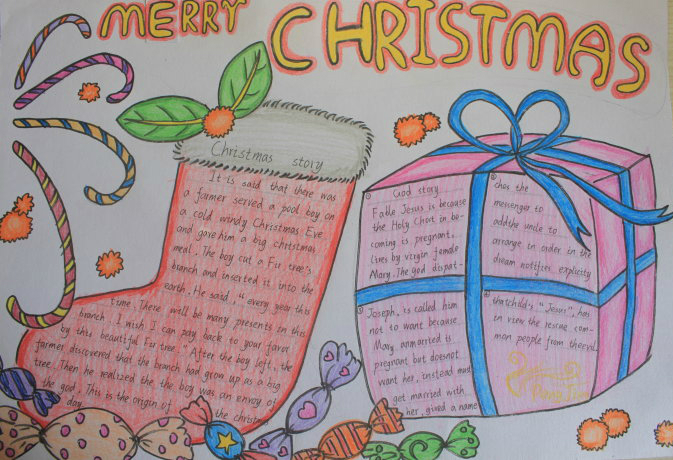 MERRY CHRISTMAS
Christmas story
It is said that there was
a farmer served a pool boy on
a cold windy Christmas Eve
and gave him a big christmas
meal. The boy cut a Fir tree's
branch and inserted it into the
earth. He said, "every year this
time, There will be many presents in this
branch, I wish I can pay back to your favor
by this beautiful Fir tree." After the boy left, the
farmer discovered that the branch had grow up as a big
tree. Then he realized the the boy was an envoy of
the god. This is the origin of the christmas
day.
① God story
Fable Jesus is because
the Holy Ghost in be-
coming is pregnant,
lives by virgin female
Mary. The god dispat-
② ches the
messenger to
addthe smile to
arrange in order in the
dream notifies explicity
③ Joseph, is called him
not to want because
Mary unmarried is
pregnant but doesnot
want her, instead must
get married with
her, gived a name
④ thatchild's "Jesus", has
in view the rescue com-
mon people from theevil.